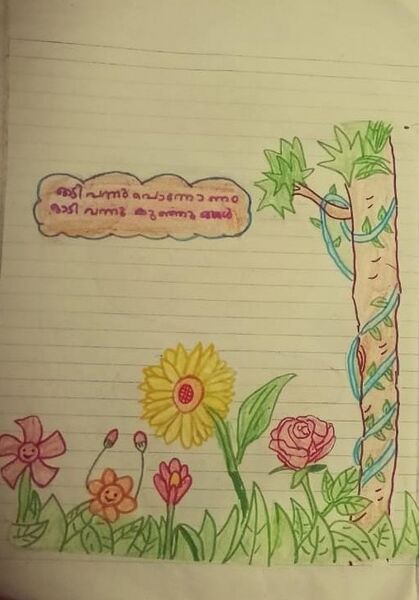 ഓടി വന്നു പൊന്നോണം
ഓടി വന്നു കുഞ്ഞുങ്ങൾ